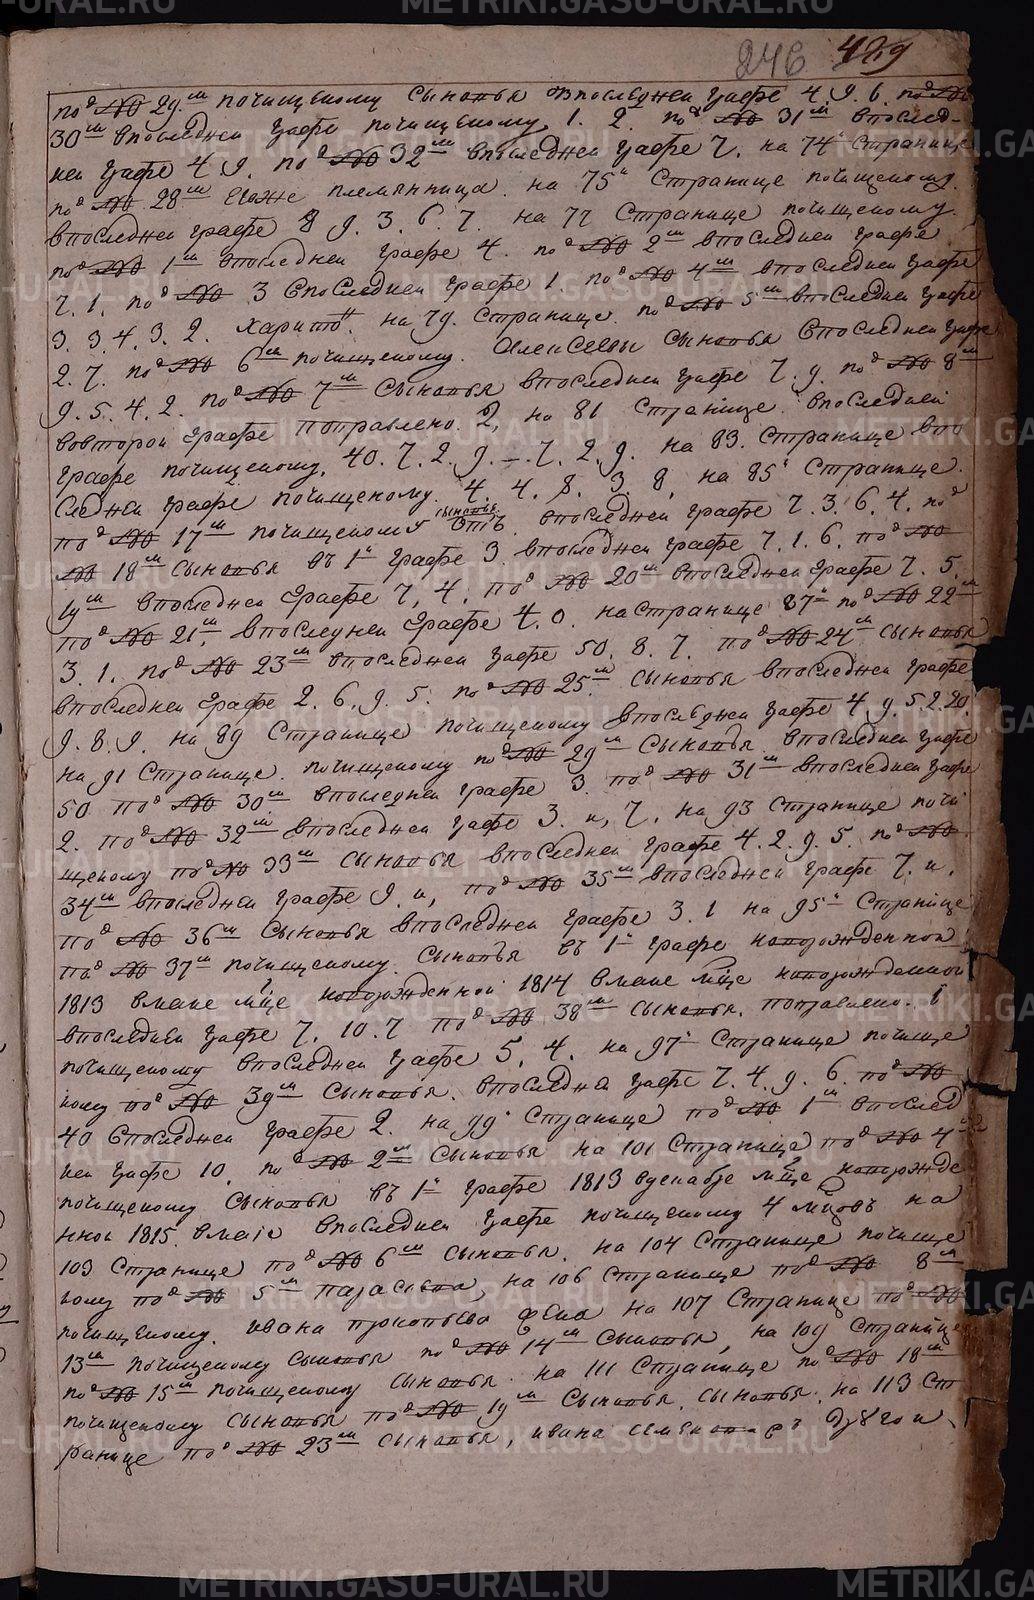 METRIKI.GASO-URAL.RU
246 429
под № 29м почищеному сыновья впоследней графе 4. 9. 6. под №
30м впоследней графе почищеному 1. 2. под № 31м впослед-
ней графе 4 9. под № 32м впоследней графе 7. на 74й странице
под № 28м ево же племянница. на 75й странице почищеному.
впоследней графе 8 9. 3. 6. 7. на 77 странице почищеному.
под № 1м впоследней графе 4. под № 2м впоследней графе
7. 1. под № 3 впоследней графе 1. под № 4м впоследней графе
3. 3. 4. 3. 2. харито на 79. странице. под № 5м впоследней графе
2. 7. под № 6м почищеному. Алексеевы сыновья впоследней графе
9. 5. 4. 2. под № 7м сыновья впоследней графе 7. 9. под № 8м
вовторой графе поправлено 2, на 81 странице впоследней
графе почищеному. 40. 7. 2. 9. – 7. 2. 9. на 83. странице впо
следней графе почищеному. 4. 4. 8. 3. 8. на 85й странице.
под № 17м почищеному сыновья впоследней графе 7. 3. 6. 4. под
№ 18м сыновья въ 1й графе 3. впоследней графе 7. 1. 6. под №
19м впоследней графе 7. 4. под № 20м впоследней графе 7. 5.
под № 21м впоследней графе 4. 0. на странице 87й под № 22м
3. 1. под № 23м впоследней графе 50. 8. 7. под № 24м сыновья
впоследней графе 2. 6. 9. 5. под № 25м сыновья впоследней графе
9. 8. 9. на 89 странице почищеному впоследней графе 4. 9. 5. 2. 20.
на 91 странице. почищеному под № 29м сыновья. впоследней графе
50. под № 30м впоследней графе 3. под № 31м впоследней графе
2. под № 32м впоследней графе 3. и, 7. на 93 странице почи
щеному под № 33м сыновья впоследней графе 4. 2. 9. 5. под №
34м впоследней графе 9. и, под № 35м впоследней графе 7. и,
под № 36м сыновья впоследней графе 3. 1 на 95й странице
под № 37м почищеному. сыновья въ 1й графе новорожденной
1813 вмаие мце новорожденной 1814 вмаие мце новорожденной
впоследней графе 7. 10. 7 под № 38м сыновья. поправлено. 1
почищеному впоследней графе 5. 4. на 97й странице почище
ному под № 39м сыновья. впоследней графе 7. 4. 9. 6. под №
40 впоследней графе 2. на 99й странице под № 1м впослед
ней графе 10. под № 2м сыновья на 101 странице под № 4м
почищеному сыновья въ 1й графе 1813 вдекабре мце новорожде
нной 1815. вмаie впоследней графе почищеному 4 мцовъ на
103 странице под № 6м сыновья. на 104 странице почище
ному под № 5м на 106 странице под № 8м
почищеному. ивана прокопьева на 107 странице под №
13м почищеному сыновья под № 14м сыновья, на 109 странице
под № 15м почищеному сыновья. на 111 странице под № 18м
почищеному сыновья под № 19м сыновья. сыновья. на 113 ст
ранице под № 23м сыновья, ивана